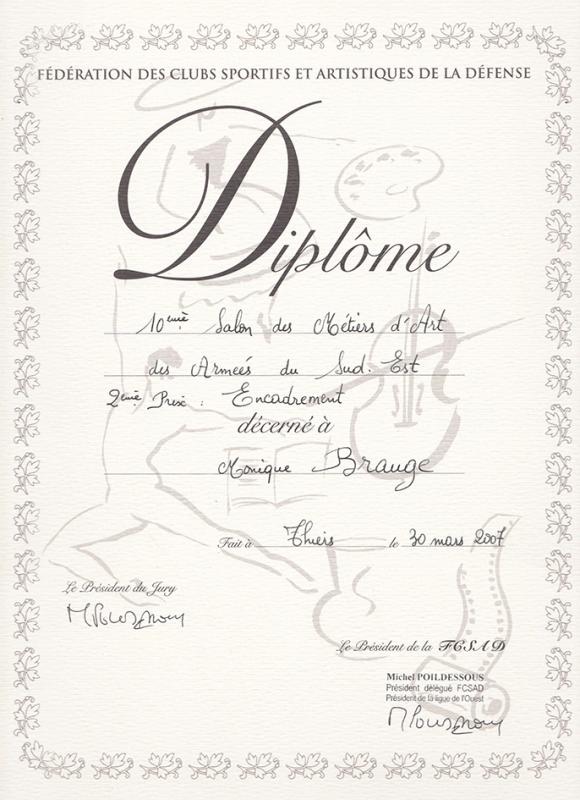 FÉDÉRATION DES CLUBS SPORTIFS ET ARTISTIQUES DE LA DÉFENSE
Diplôme
10ème Salon des Métiers d'Art
des Armeés du Sud. Est
2ème Prix : Encadrement
décerné à
Monique Brauge
Fait à Thiers le 30 mars 2007
Le Président du Jury
Le Président de la FCSAD
Michel POILDESSOUS
Président délégué FCSAD
Président de la ligue de l'Ouest